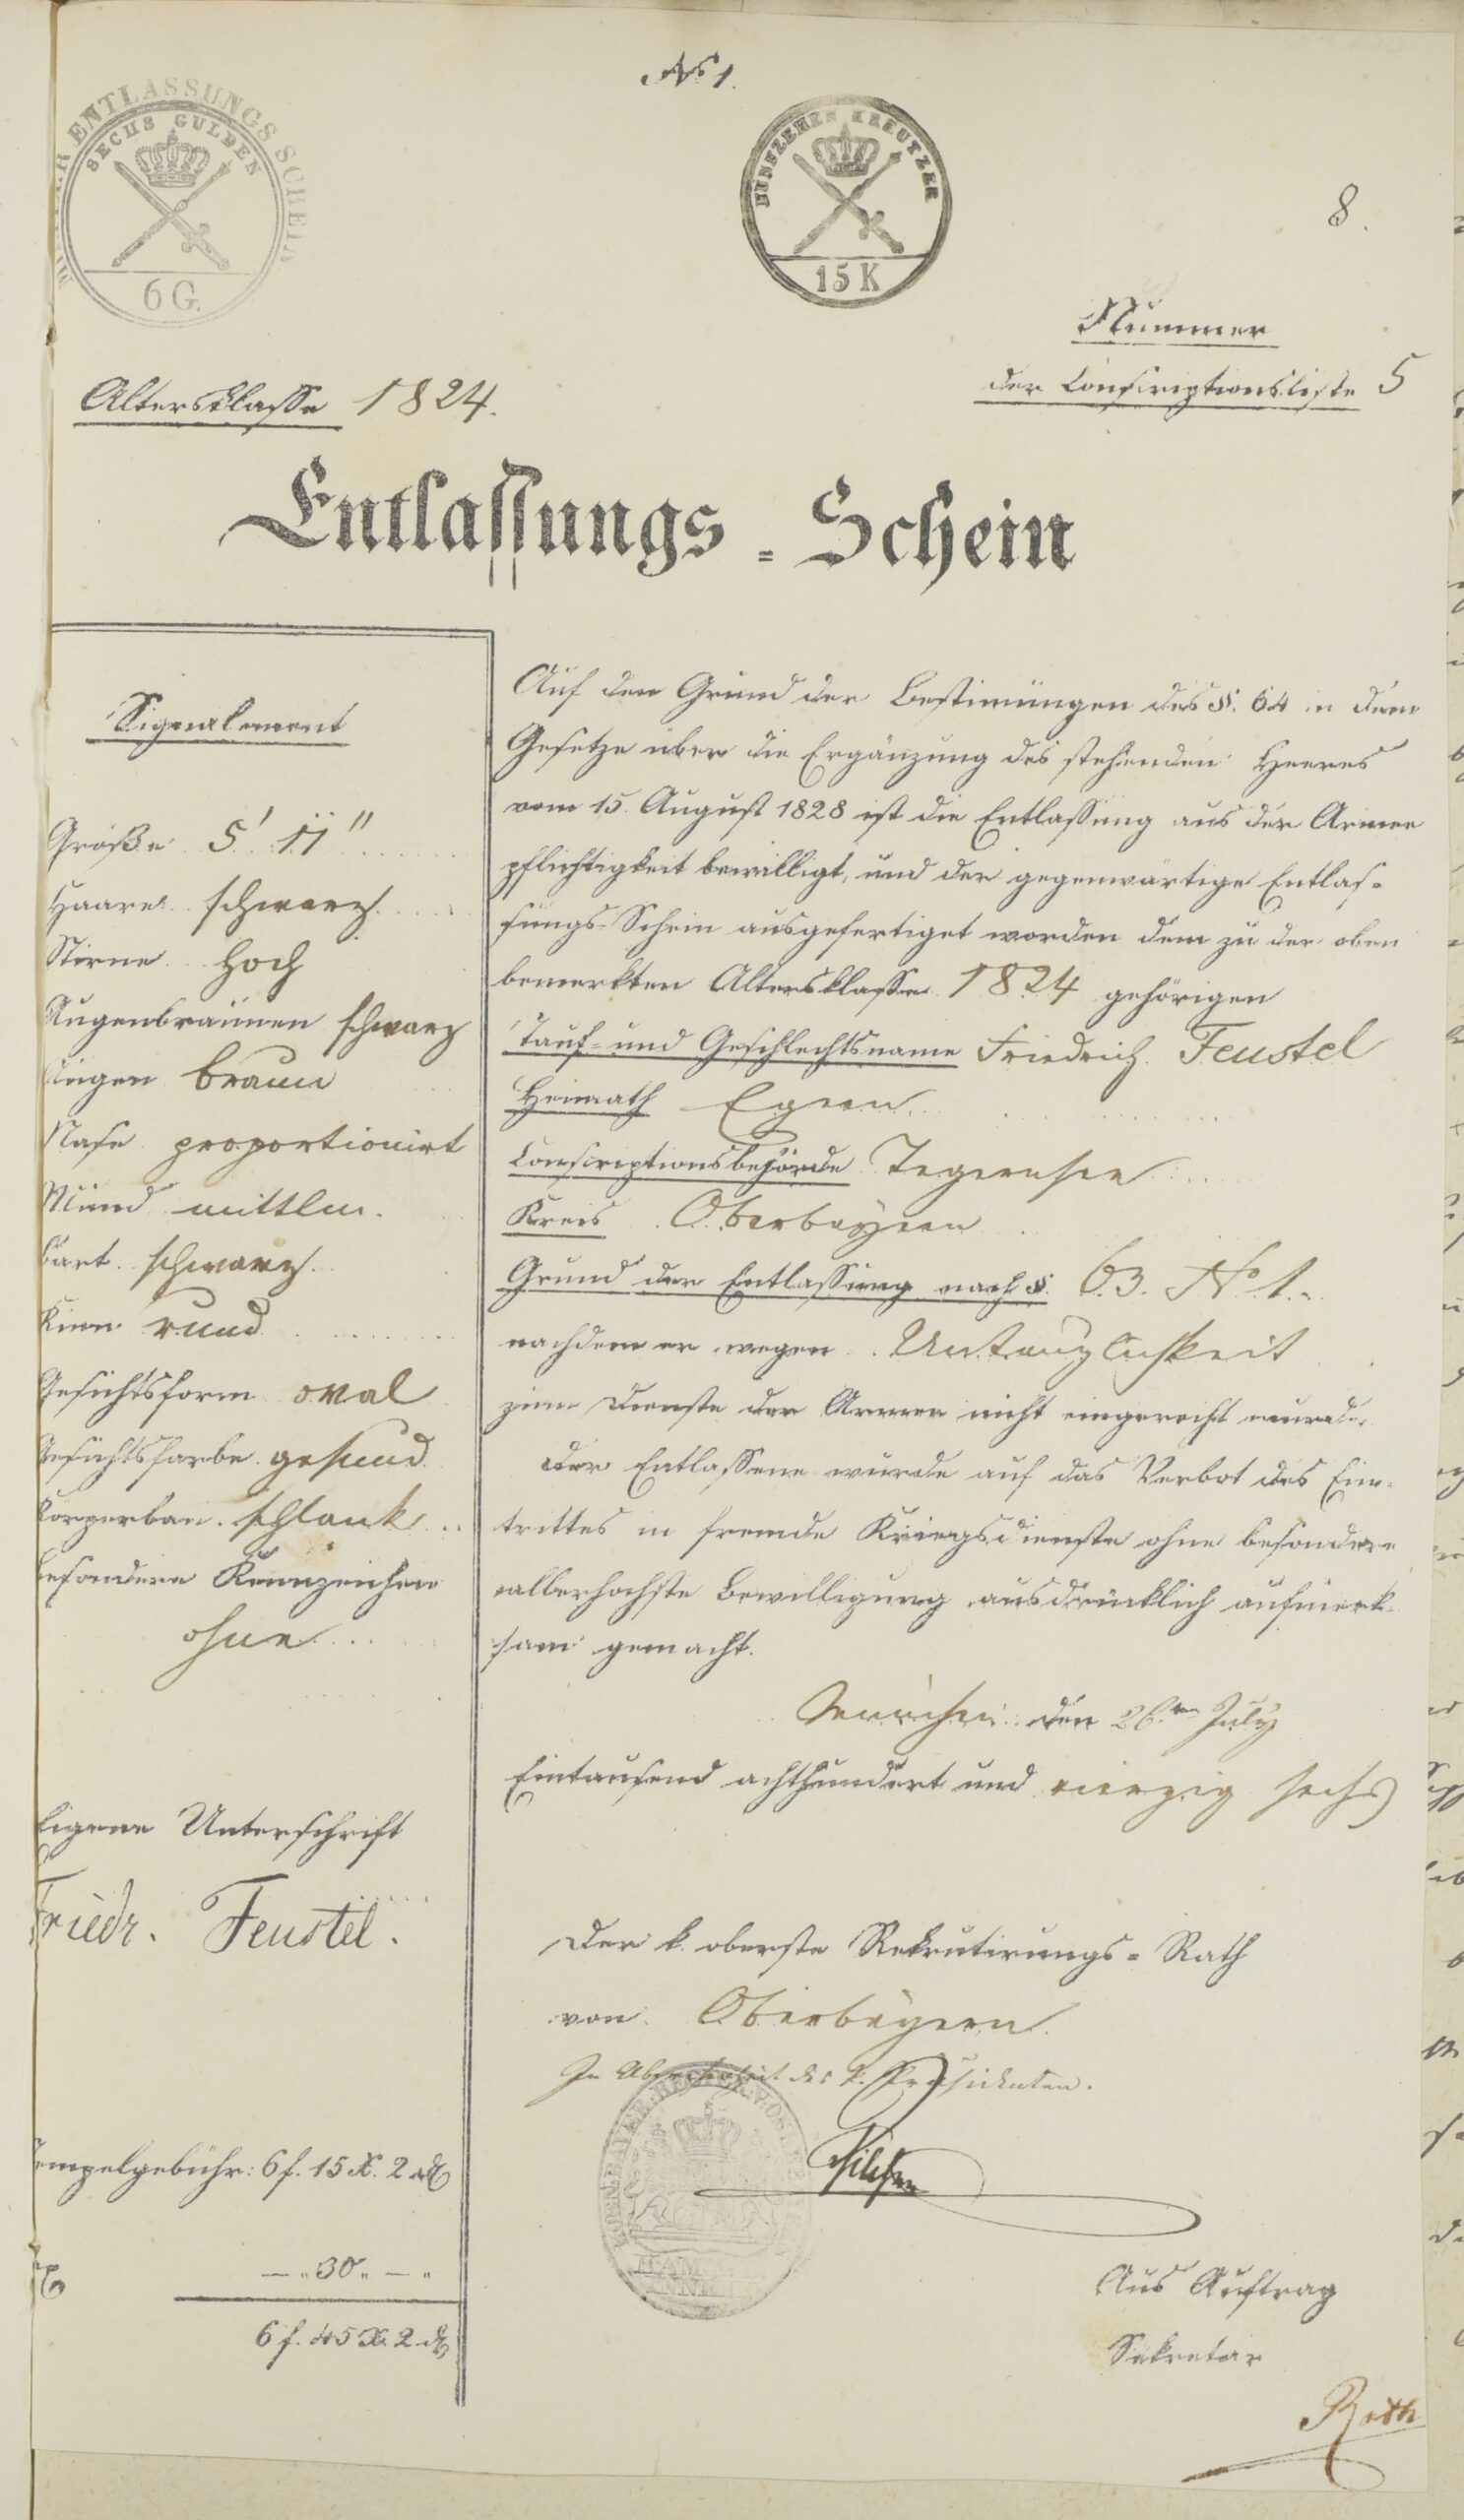 No 1.
ENTLASSUNGS SCHEIN
SECHS GULDEN
6 G.
FÜNFZEHEN KREUTZER
15 K
8.
Nummer
der Conscriptionsliste 5
Altersklasse 1824.
Entlassungs-Schein
Signalement
Größe 5' 11"
Haare schwarz
Stirne hoch
Augenbraunen schwarz
Augen braun
Nase proportionirt
Mund mittlm.
Bart schwarz
Kinn rund
Gesichtsform oval
Gesichtsfarbe gesund
Körperbau schlank
Besondere Kennzeichen
ohne
Eigene Unterschrift
Friedr. Feustel.
empelgebühr: 6 f. 15 X. 2
— " 30 " — "
6 f. 45 X. 2
Auf den Grund der Bestimungen des §. 64 in dem
Gesetze über die Ergänzung des stehenden Heeres
vom 15. August 1828 ist die Entlassung aus der Armee
pflichtigkeit bewilligt, und der gegenwärtige Entlas-
sungs-Schein ausgefertiget worden dem zu der oben
bemerkten Altersklasse 1824 gehörigen
Tauf- und Geschlechtsname Friedrich Feustel
Heimath Egern
Conscriptionsbehörde Tegernsee
Kreis Oberbayern
Grund der Entlassung nach §. 63. No 1.
nachdem er wegen Untauglichkeit
zum Dienste der Armee nicht eingereiht wurde.
Der Entlassene wurde auf das Verbot des Ein-
trittes in fremde Kriegsdienste ohne besondere
allerhöchste Bewilligung ausdrücklich aufmerk-
sam gemacht.
München den 26.ten July
Eintausend achthundert und vierzig sechs
Der k. oberste Rekrutirungs-Rath
von Oberbayern.
In Abwesenheit des k. Präsidenten.
Aus Auftrag
Sekretär
Roth